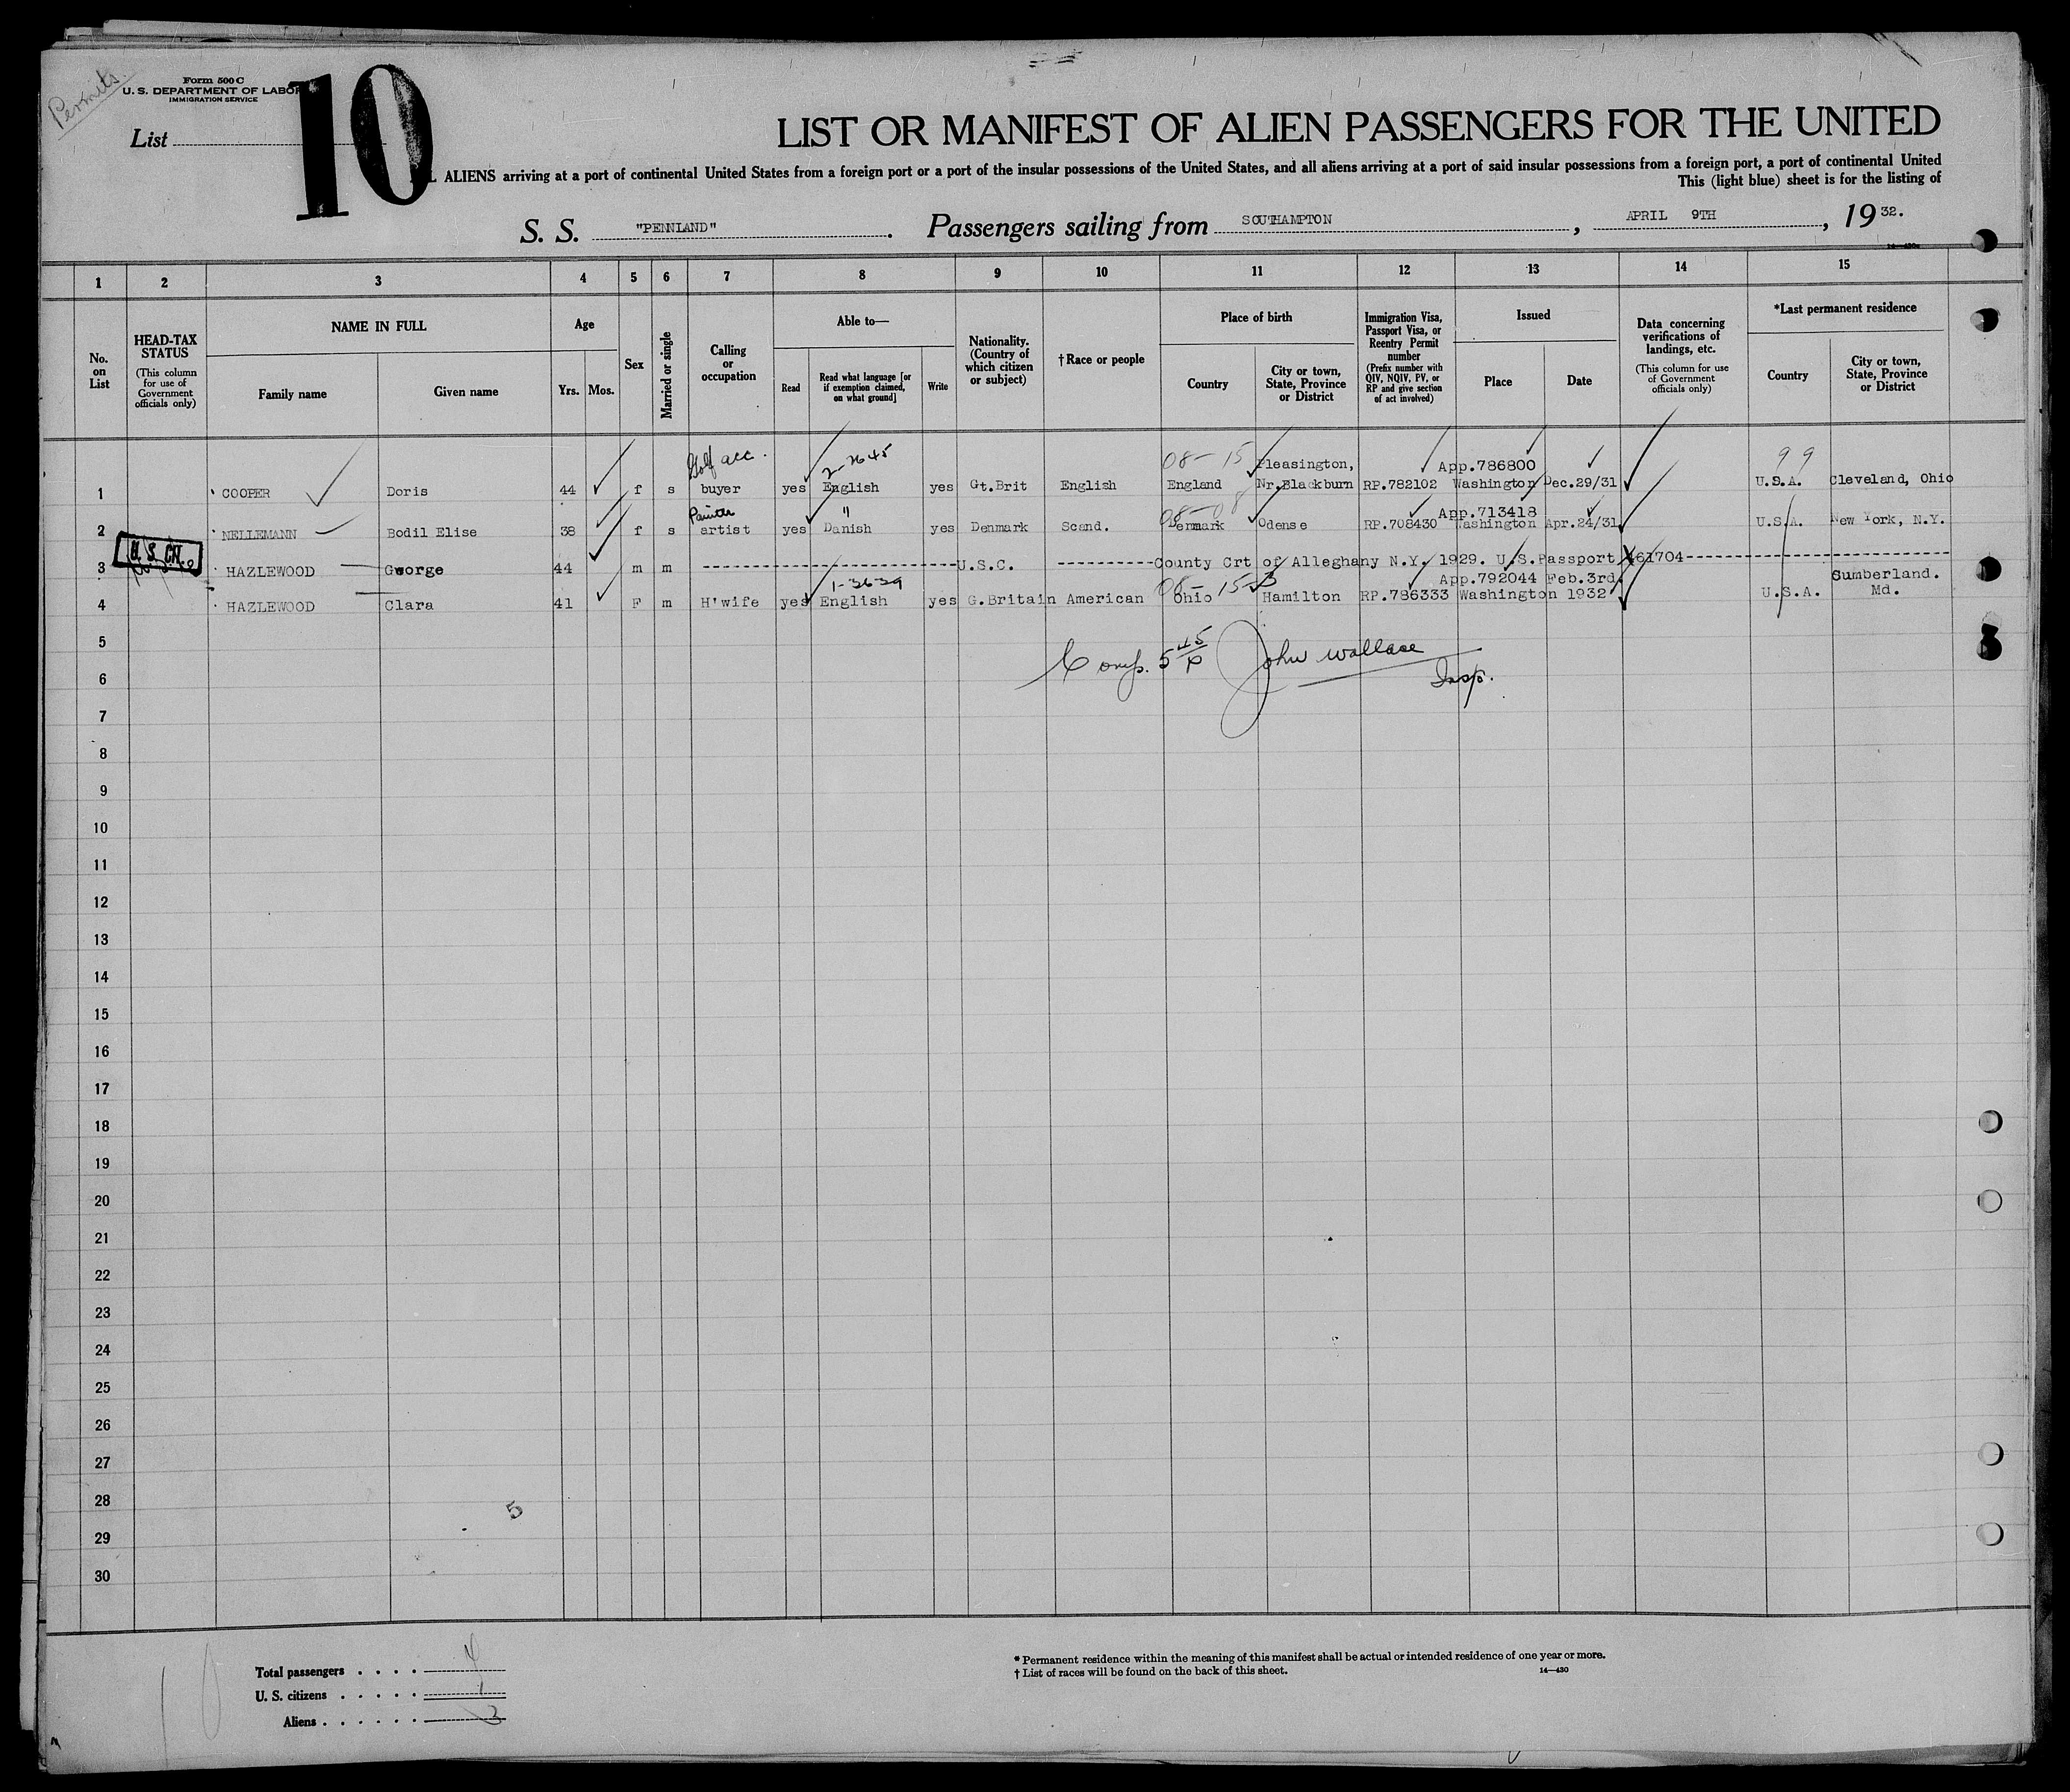 Permits.
Form 500 C
U. S. DEPARTMENT OF LABOR
IMMIGRATION SERVICE
10
List
LIST OR MANIFEST OF ALIEN PASSENGERS FOR THE UNITED
ALIENS arriving at a port of continental United States from a foreign port or a port of the insular possessions of the United States, and all aliens arriving at a port of said insular possessions from a foreign port, a port of continental United
This (light blue) sheet is for the listing of
S. S. "PENNLAND". Passengers sailing from SOUTHAMPTON, APRIL 9TH, 1932.
14—430
1 2 3 4 5 6 7 8 9 10 11 12 13 14 15
No. on List
HEAD-TAX STATUS
(This column for use of Government officials only)
NAME IN FULL
Family name Given name
Age
Yrs. Mos.
Sex
Married or single
Calling or occupation
Able to—
Read
Read what language [or if exemption claimed, on what ground]
Write
Nationality. (Country of which citizen or subject)
†Race or people
Place of birth
Country
City or town, State, Province or District
Immigration Visa, Passport Visa, or Reentry Permit number
(Prefix number with QIV, NQIV, PV, or RP and give section of act involved)
Issued
Place Date
Data concerning verifications of landings, etc.
(This column for use of Government officials only)
*Last permanent residence
Country
City or town, State, Province or District
Golf acc. 2-7645 08-15 Pleasington, App.786800 99
1 COOPER Doris 44 f s buyer yes English yes Gt.Brit English England Nr.Blackburn RP.782102 Washington Dec.29/31 U.S.A. Cleveland, Ohio
Painter " 08-08 App.713418
2 NELLEMANN Bodil Elise 38 f s artist yes Danish yes Denmark Scand. Denmark Odense RP.708430 Washington Apr.24/31 U.S.A. New York, N.Y.
U. S. CIT.
3 HAZLEWOOD Gworge 44 m m ----------U.S.C. ----------County Crt of Alleghany N.Y. 1929. U.S.Passport 461704----------
1-3629 08-15-3 App.792044 Feb.3rd Sumberland.
4 HAZLEWOOD Clara 41 F m H'wife yes English yes G.Britain American Ohio Hamilton RP.786333 Washington 1932 U.S.A. Md.
5
Comp. 5 45/P John Wallace
6
Insp.
3
7
8
9
10
11
12
13
14
15
16
17
18
19
20
21
22
23
24
25
26
27
28
5
29
30
10
Total passengers . . . . 4
U. S. citizens . . . . . 1
Aliens . . . . . . 3
* Permanent residence within the meaning of this manifest shall be actual or intended residence of one year or more.
† List of races will be found on the back of this sheet.
14—430